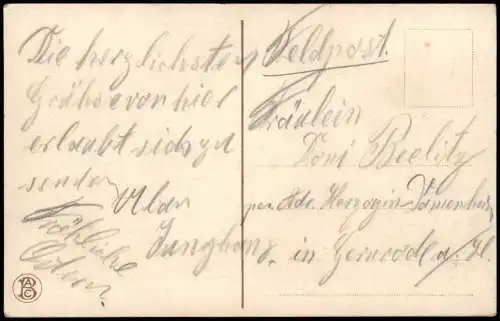 Die herzlichsten
Grüße von hier
erlaubt sich zu
senden
Ulan
Junghans.
Fröhliche
Ostern.
Feldpost.
Fräulein
Toni Beelitz
per Adr. Herzogin
in Gernrode a. H.